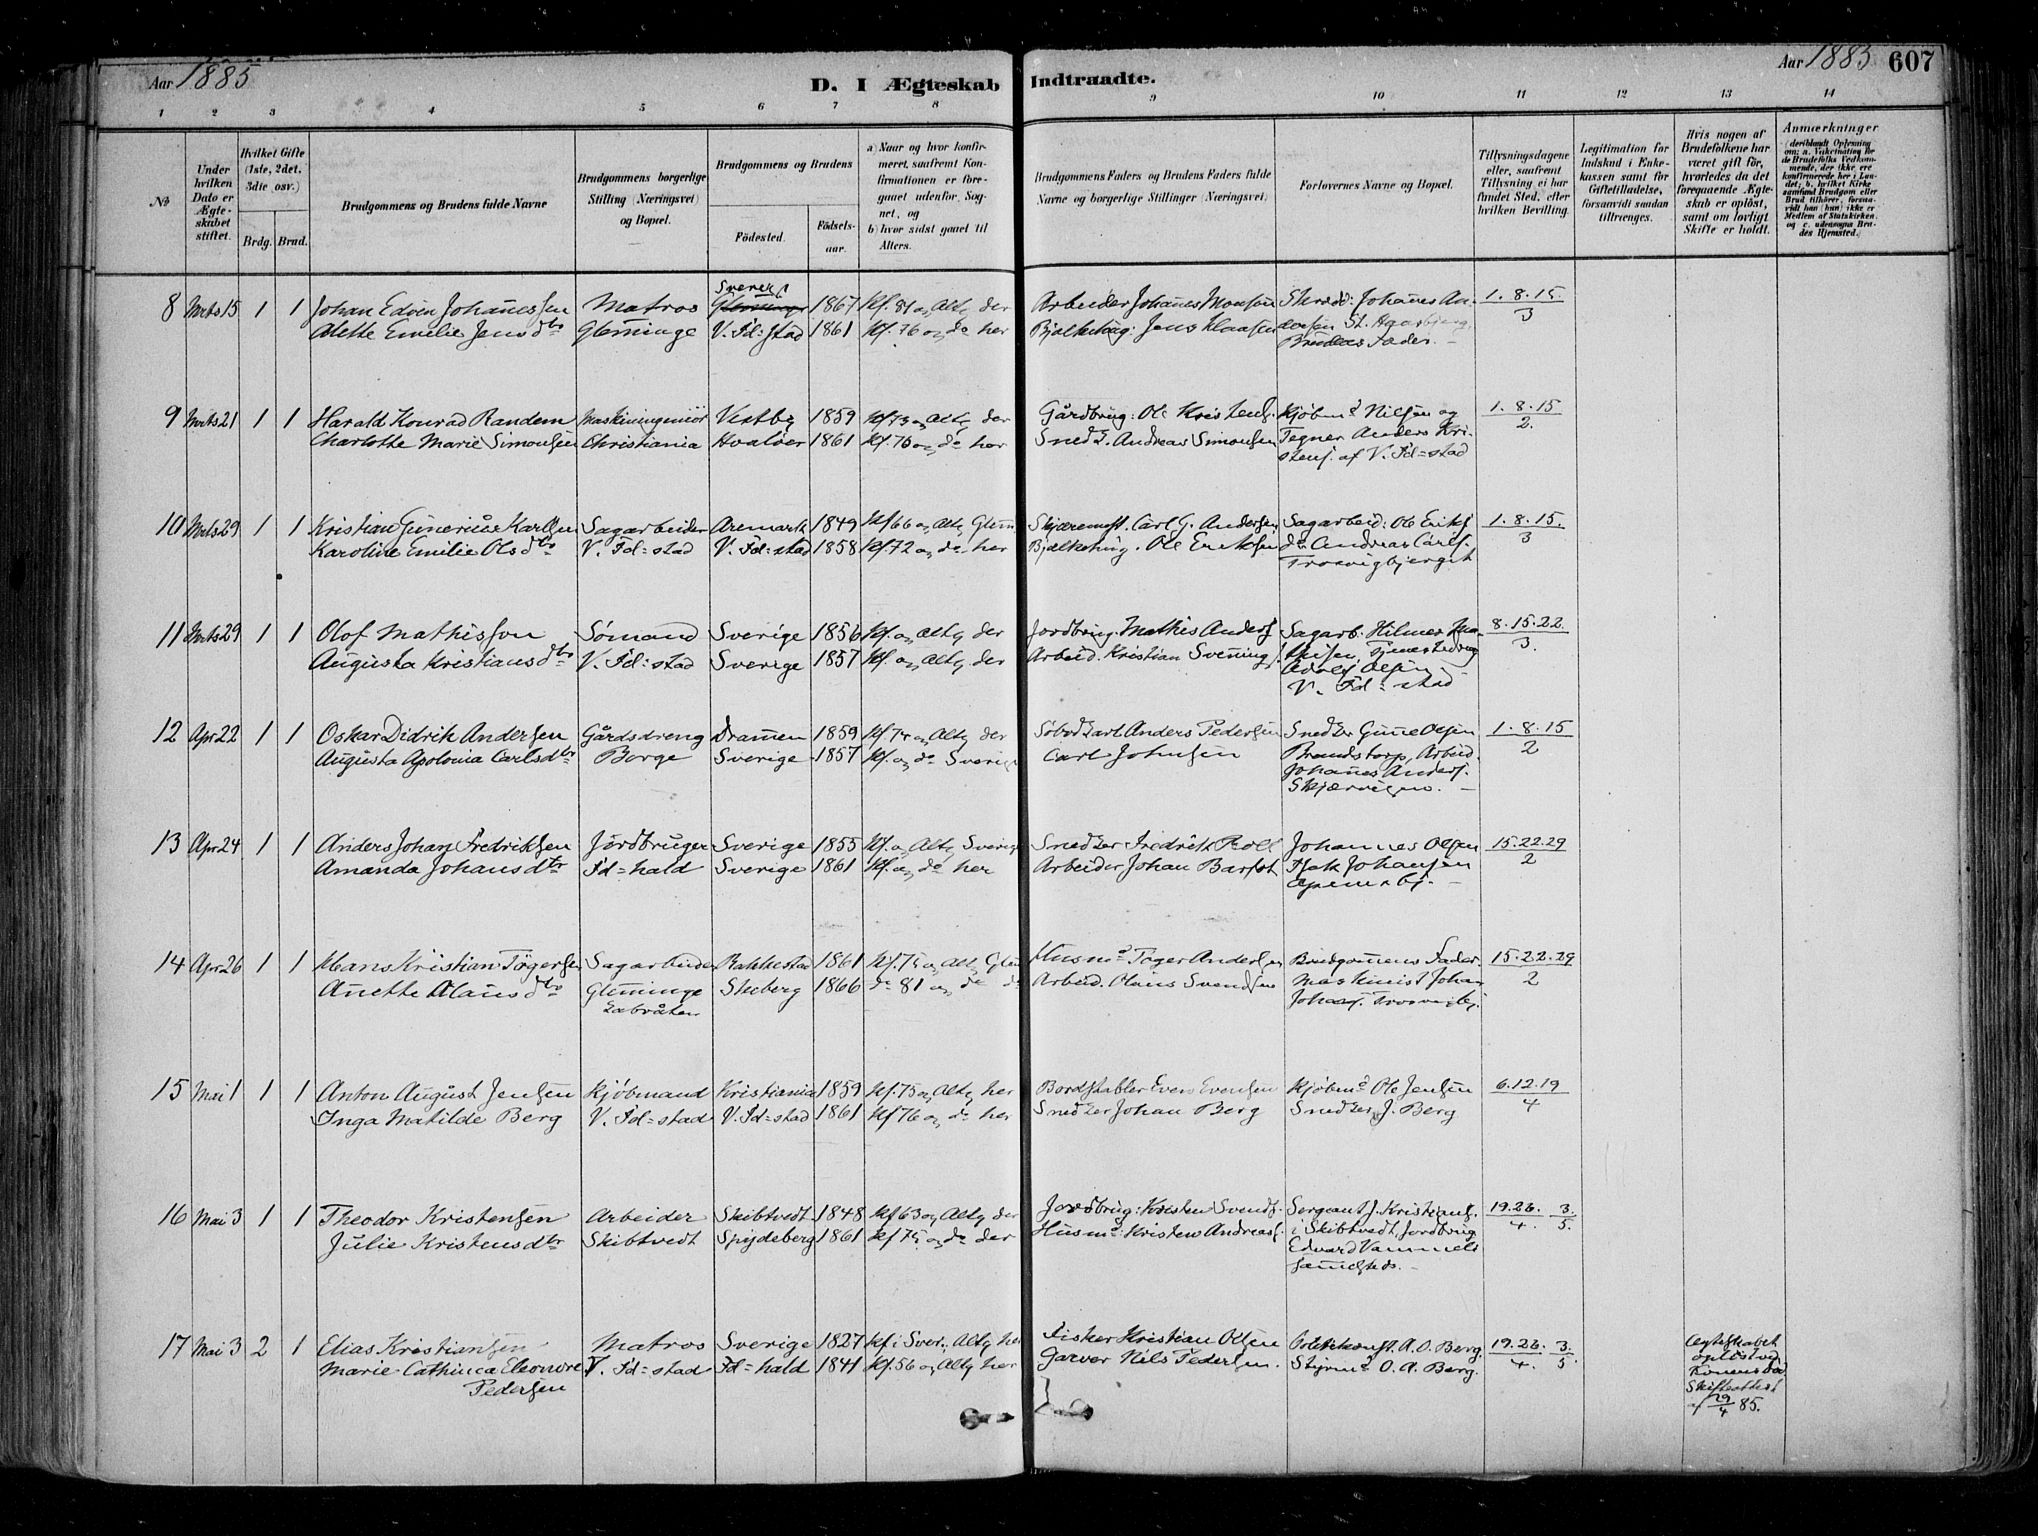 Aar 1885
D. I Ægteskab Indtraadte.
Aar 1885 607
1 2 3 4 5 6 7 8 9 10 11 12 13 14
No
Under hvilken Dato er Ægteskabet stiftet.
Hvilket Gifte (1ste, 2det, 3die osv.)
Brdg. Brud.
Brudgommens og Brudens fulde Navne
Brudgommens borgerlige Stilling (Næringsvei) og Bopæl.
Brudgommens og Brudens
Fødested. Fødselsaar.
a) Naar og hvor konfirmeret, saafremt Konfirmationen er foregaaet udenfor Sognet, og
b) hvor sidst gaaet til Alters.
Brudgommens Faders og Brudens Faders fulde Navne og borgerlige Stillinger (Næringsvei)
Forlovernes Navne og Bopæl.
Tillysningsdagene eller, saafremt Tillysning ei har fundet Sted, efter hvilken Bevilling.
Legitimation for Indskud i Enkekassen samt for Giftetilladelse, forsaavidt saadan tiltrænges.
Hvis nogen af Brudefolkene har været gift før, hvorledes da det foregaaende Ægteskab er opløst, samt om lovligt Skifte er holdt.
Anmærkninger
(deriblandt Oplysning om: a. Vaksination for de Brudefolks Vedkommende, der ikke ere konfirmerede her i Landet; b. hvilket Kirkesamfund Brudgom eller Brud tilhører, forsaavidt han (hun) ikke er Medlem af Statskirken, og c. udensogns Brudes Hjemsted.)
8 Mrts 15 1 1 Johan Edvin Johanessen Matros Sverig 1867 Kf. 81 og Altg der Arbeider Johanes Monsen Skræd: Johanes An- 1. 8. 15
Alette Emilie Jensdtr Gleminge V. Fd=stad 1861 Kf. 76 og do her Bjælkehug: Jens Klaasen dersen St. 3
Brudens Fader.
9 Mrts 21 1 1 Harald Konrad Randem Maskiningeniör Vestby 1859 Kf 73 og Altg der Gårdbrug: Ole Kristens. Kjøbmd Nilsen og 1. 8. 15
Charlotte Marie Simonsen Christiania Hvaløer 1861 Kf. 76 og do her Snedk. Andreas Simonsen Tegner Anders Kri- 2.
stens. af V. Fd=stad
10 Mrts 29 1 1 Kristian Gunerius Karlsen Sagarbeider Aremark 1849 Kf 66 og Altg Glem. Skjæremest. Carl G. Andersen Sagarbeid: Ole Eriks. 1. 8. 15.
Karoline Emilie Olsdtr V. Fd=stad V. Fd=stad 1858 Kf. 72 og do her Bjælkehug. Ole Eriksen do Andreas Carls. 3
Trosvigbjerget
11 Mrts 29 1 1 Olof Mathisson Sømand Sverige 1856 Kf. og Altg der Jordbrug. Mathis Anders. Sagarb. Hilmer 8. 15. 22.
Augusta Kristiansdtr V. Fd=stad Sverige 1857 Kf. og Altg der Arbeid. Kristian Svenings. Tjenestedreng 3.
Adolf Olsen
V. Fd=stad
12 Apr 22 1 1 Oskar Didrik Andersen Gårdsdreng Dramen 1859 Kf. 74 og Altg der Anders Pedersen Snedker Gune Olsen 1. 8. 15
Augusta Apolonia Carlsdtr Borge Sverige 1857 Kf. og do Sverige Carl Johnsen Brandstorp, Arbeid. 2
Johanes Anders.
Skjærvigen.
13 Apr 24 1 1 Anders Johan Fredriksen Jordbruger Sverige 1855 Kf. og Altg Sverige Snedker Fredrik Roll Johannes Olsen 15. 22. 29
Amanda Johansdtr Fd=hald Sverige 1861 Kf. og do her Arbeider Johan Barfot Isak Johansen 2
14 Apr 26 1 1 Hans Kristian Tøgersen Sagarbeider Rakkestad 1861 Kf. 75 og Altg Glem Husmd Tøger Andersen Brudgomens Fader. 15. 22. 29
Anette Olausdtr Gleminge Skeberg 1866 do 81 og do do Arbeid. Olaus Svendsen Maskinist Johan 2
Labråten Johans. Trosvigbj.
15 Mai 1 1 1 Anton August Jensen Kjøbmand Kristiania 1859 Kf. 75 og Altg her Bordstabler Even Evensen Kjøbmd Ole Jensen 6. 12. 19
Inga Matilde Berg V. Fd=stad V. Fd=stad 1861 Kf 76 og do her Snedker Johan Berg Snedker J. Berg 4
16 Mai 3 1 1 Theodor Kristensen Arbeider Skibtvedt 1848 Kf 63 og Altg der Jordbrug: Kristen Svends. Sergeant J. Kristians. 19. 26. 3.
Julie Kristensdtr Skibtvedt Spydeberg 1861 Kf 75 og do der Husmd: Kristen Andreass. i Skibtvedt, Jordbrug 4. 5
Edvard Vammeli
samesteds.
17 Mai 3 2 1 Elias Kristiansen Matros Sverige 1827 Kf i Sver. Altg her Fisker Kristian Olsen Politikonst. A. O. Berg. 19. 26. 3. Ægteskabet
Marie Cathinca Eleonore V. Fd=stad Fd=hald 1841 Kf. 56 og Altg her Garver Nils Pedersen. Styrmd O. A. Berg. 4. 5 opløst ved
Pedersen Konens Død
Skifteattest
af 29/4 85.